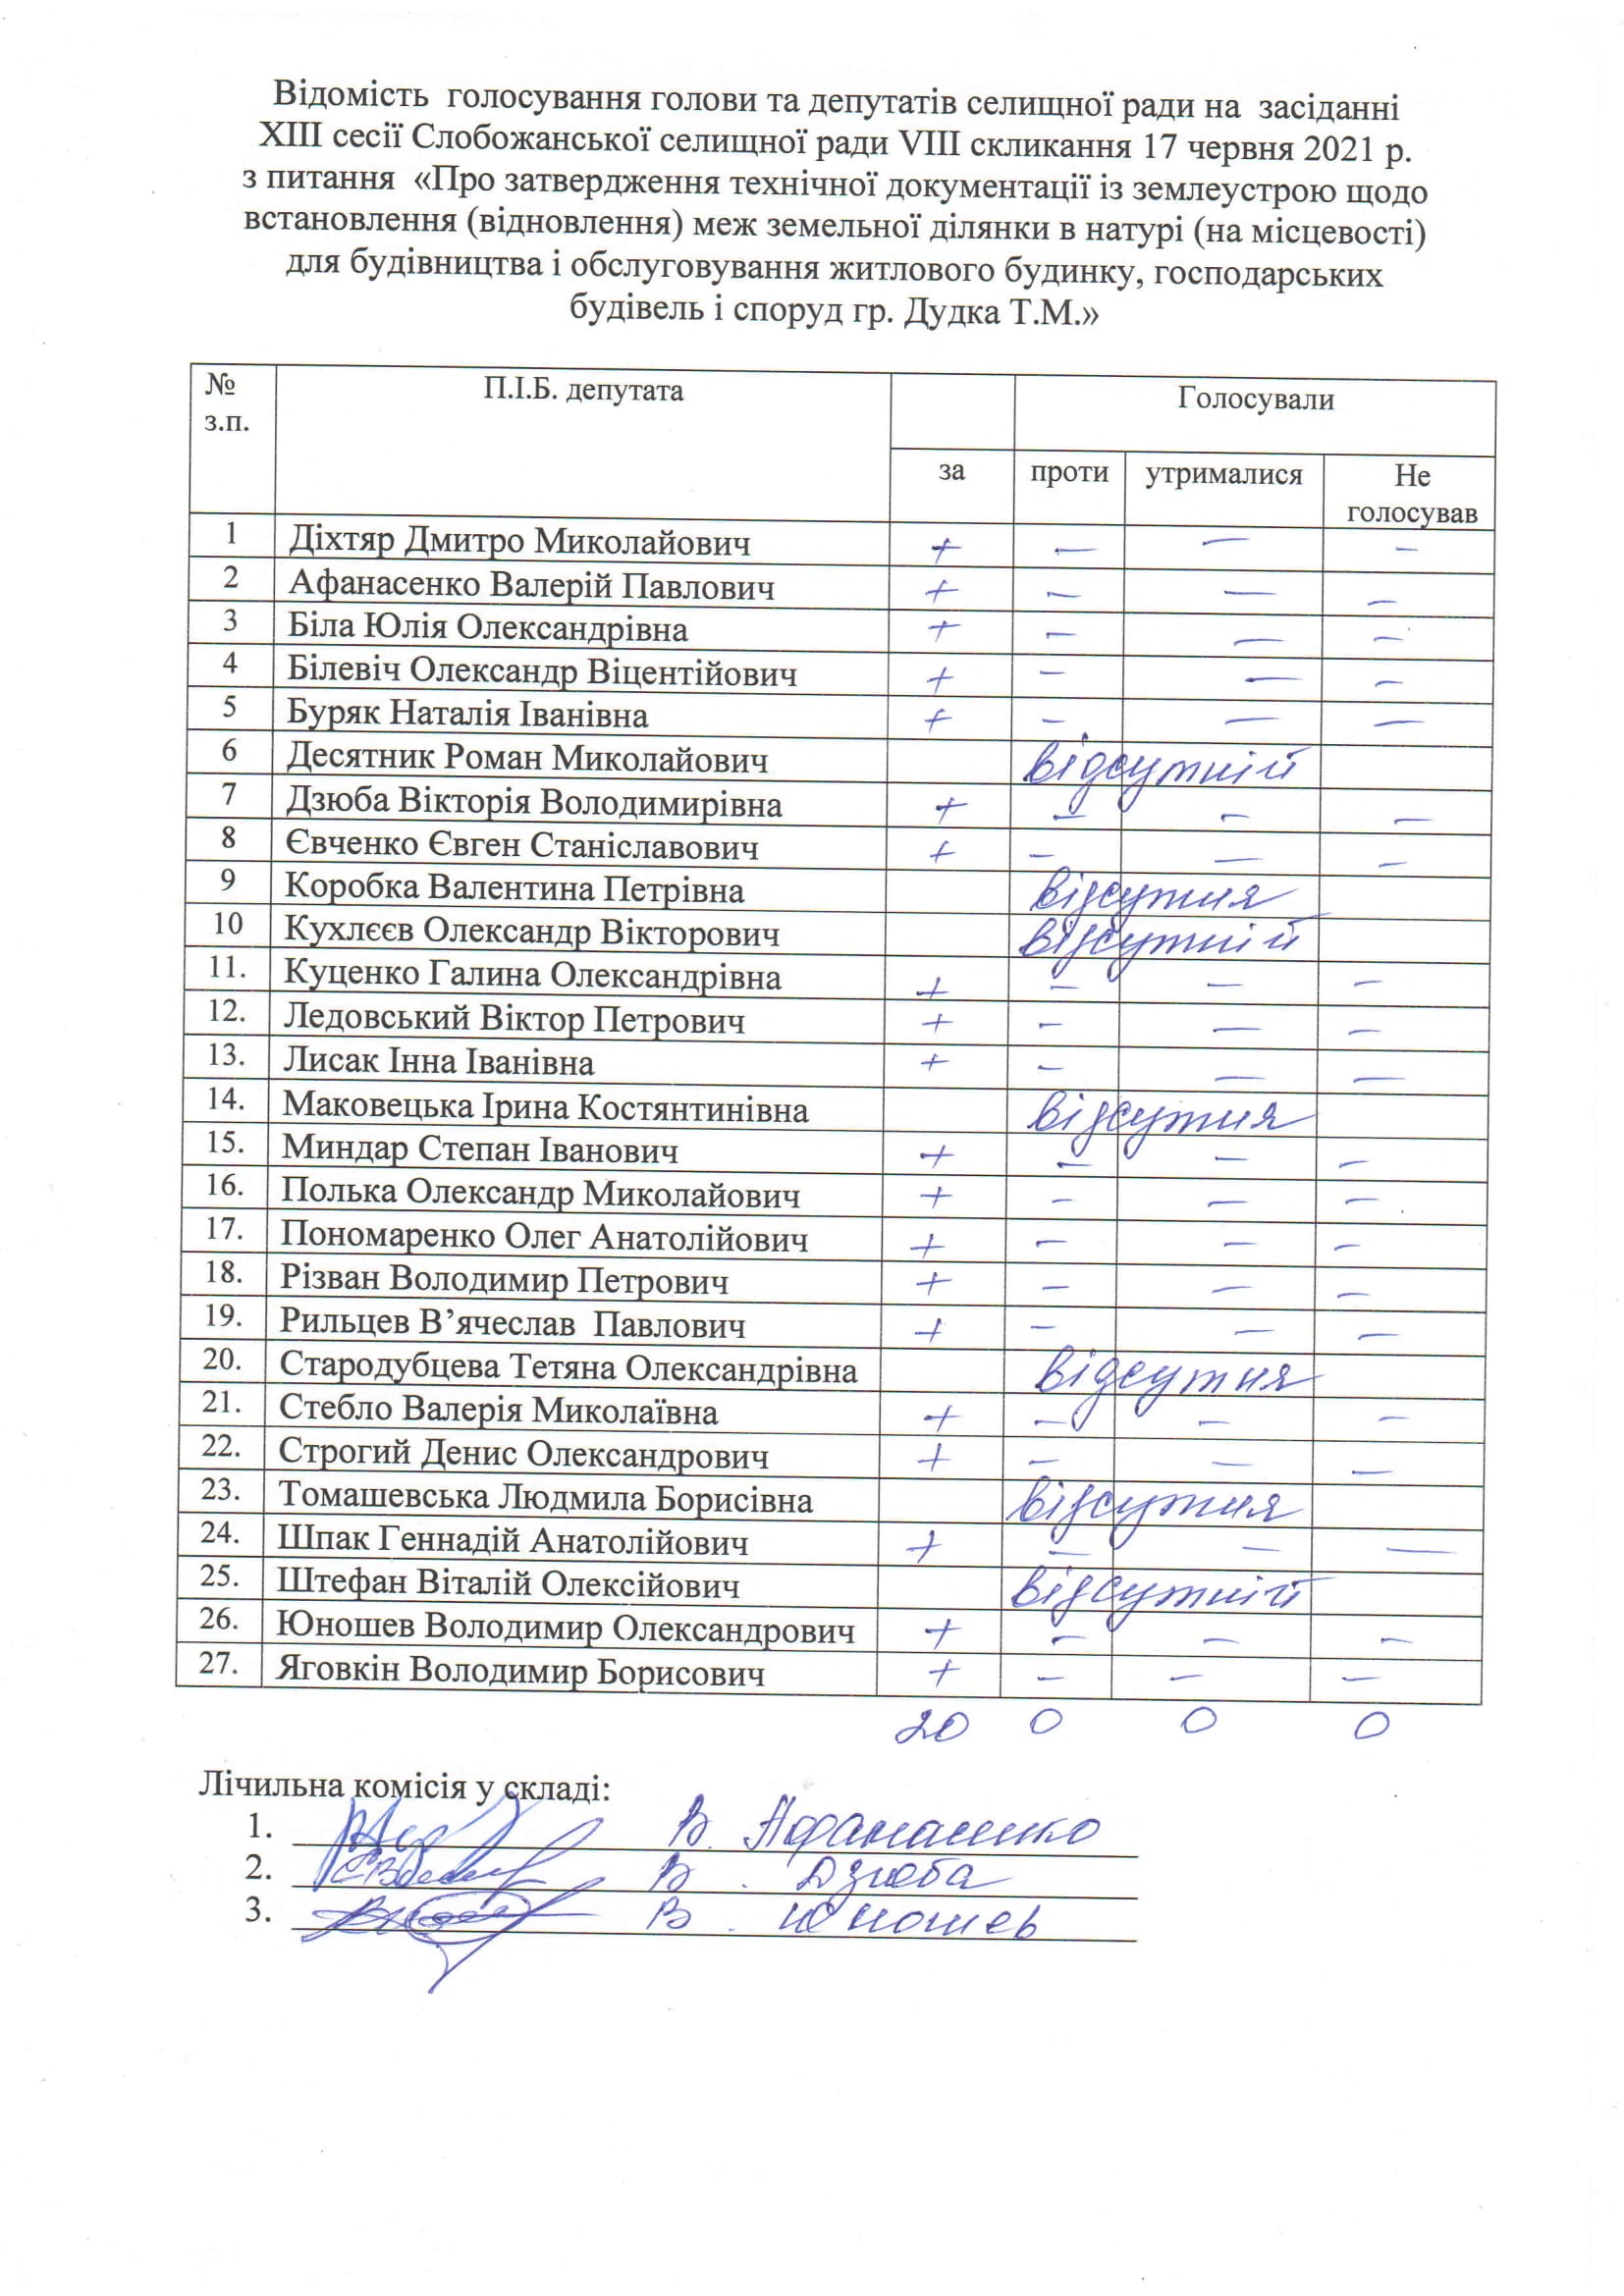 Відомість голосування голови та депутатів селищної ради на засіданні
XIII сесії Слобожанської селищної ради VIII скликання 17 червня 2021 р.
з питання «Про затвердження технічної документації із землеустрою щодо
встановлення (відновлення) меж земельної ділянки в натурі (на місцевості)
для будівництва і обслуговування житлового будинку, господарських
будівель і споруд гр. Дудка Т.М.»
№ з.п. П.І.Б. депутата Голосували
за проти утрималися Не голосував
1 Діхтяр Дмитро Миколайович + — — —
2 Афанасенко Валерій Павлович + — — —
3 Біла Юлія Олександрівна + — — —
4 Білевіч Олександр Віцентійович + — — —
5 Буряк Наталія Іванівна + — — —
6 Десятник Роман Миколайович відсутній
7 Дзюба Вікторія Володимирівна + — — —
8 Євченко Євген Станіславович + — — —
9 Коробка Валентина Петрівна відсутня
10 Кухлєєв Олександр Вікторович відсутній
11. Куценко Галина Олександрівна + — — —
12. Ледовський Віктор Петрович + — — —
13. Лисак Інна Іванівна + — — —
14. Маковецька Ірина Костянтинівна відсутня
15. Миндар Степан Іванович + — — —
16. Полька Олександр Миколайович + — — —
17. Пономаренко Олег Анатолійович + — — —
18. Різван Володимир Петрович + — — —
19. Рильцев В’ячеслав Павлович + — — —
20. Стародубцева Тетяна Олександрівна відсутня
21. Стебло Валерія Миколаївна + — — —
22. Строгий Денис Олександрович + — — —
23. Томашевська Людмила Борисівна відсутня
24. Шпак Геннадій Анатолійович + — — —
25. Штефан Віталій Олексійович відсутній
26. Юношев Володимир Олександрович + — — —
27. Яговкін Володимир Борисович + — — —
20 0 0 0
Лічильна комісія у складі:
1. В. Афанасенко
2. В. Дзюба
3. В. Юношев